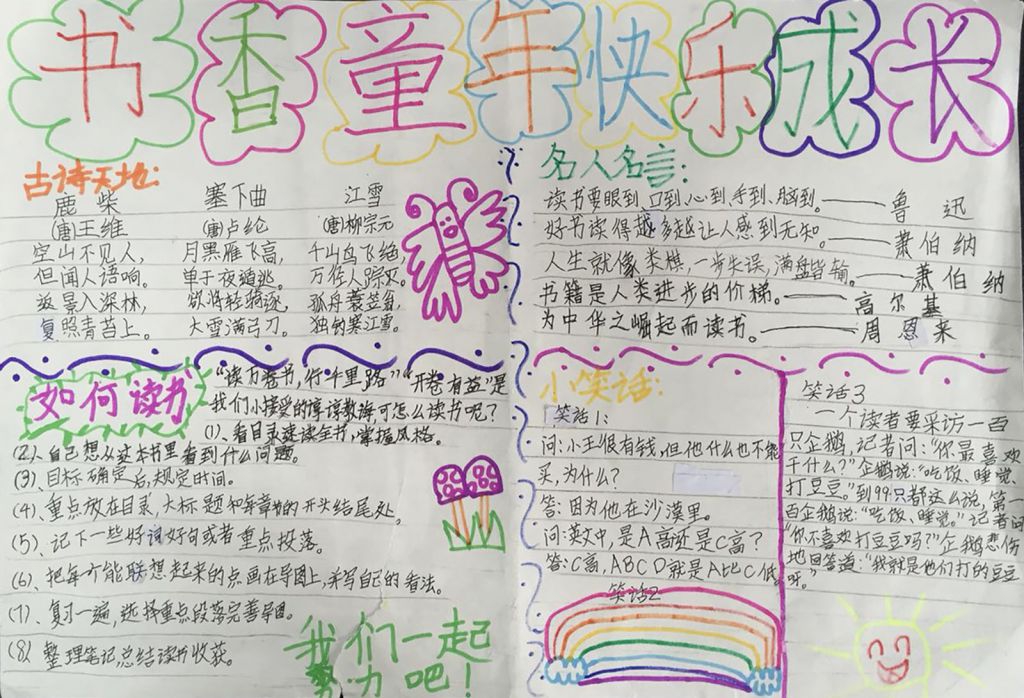 书香童年快乐成长
古诗天地:
鹿柴
(唐)王维
空山不见人,
但闻人语响。
返景入深林,
复照青苔上。
塞下曲
(唐)卢纶
月黑雁飞高,
单于夜遁逃。
欲将轻骑逐,
大雪满弓刀。
江雪
(唐)柳宗元
千山鸟飞绝,
万径人踪灭,
孤舟蓑笠翁,
独钓寒江雪。
名人名言:
读书要眼到、口到、心到、手到、脑到。——鲁迅
好书读得越多越让人感到无知。——萧伯纳
人生就像类棋,一步失误,满盘皆输。——萧伯纳
书籍是人类进步的价梯。——高尔基
为中华之崛起而读书。——周恩来
如何读书
“读万卷书,行千里路”“开卷有益”是
我们小接受的谆谆教诲可怎么读书呢?
(1)、看目录速读全书,掌握风格。
(2)、自己想从这本书里看到什么问题。
(3)、目标确定后,规定时间。
(4)、重点放在目录、大标题和每章的开头结尾处。
(5)、记下一些好词好句或者重点段落。
(6)、把每个能联想起来的点画在导图上,并写自己的看法。
(7)、复习一遍,选择重点段落完善导图。
(8)、整理笔记总结读书收获。
我们一起
努力吧!
小笑话:
笑话1:
问:小王很有钱,但他什么也不能
买,为什么?
答:因为他在沙漠里。
问:英文中,是A高还是C高?
答:C高,ABCD就是A比C低
笑话2
笑话3
一个读者要采访一百
只企鹅,记者问:“你最喜欢
干什么?”企鹅说:“吃饭、睡觉、
打豆豆。”到99只都这么说,第一
百企鹅说:“吃饭、睡觉。”记者问
“你不喜欢打豆豆吗?”企鹅悲伤
地回答道:“我就是他们打的豆豆
呀。”